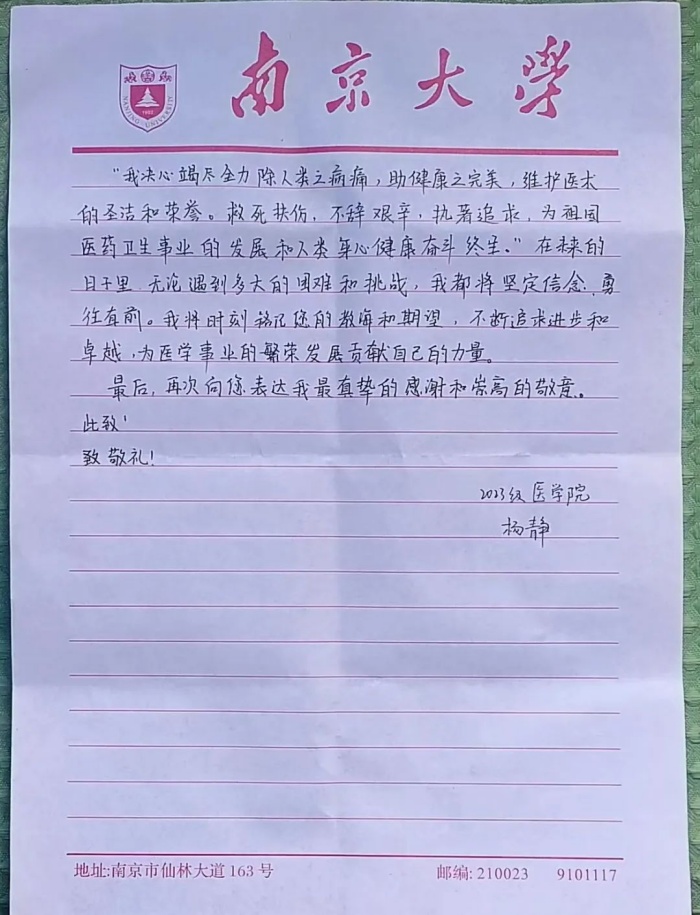 南京大学
NANJING UNIVERSITY
1902
“我决心竭尽全力除人类之病痛，助健康之完美，维护医术
的圣洁和荣誉。救死扶伤，不辞艰辛，执著追求，为祖国
医药卫生事业的发展和人类身心健康奋斗终生。”在未来的
日子里 无论遇到多大的困难和挑战，我都将坚定信念、勇
往直前。我将时刻铭记您的教诲和期望，不断追求进步和
卓越，为医学事业的繁荣发展贡献自己的力量。
最后，再次向您表达我最真挚的感谢和崇高的敬意。
此致！
致敬礼！
2023级 医学院
杨静
地址:南京市仙林大道 163 号 邮编: 210023 9101117